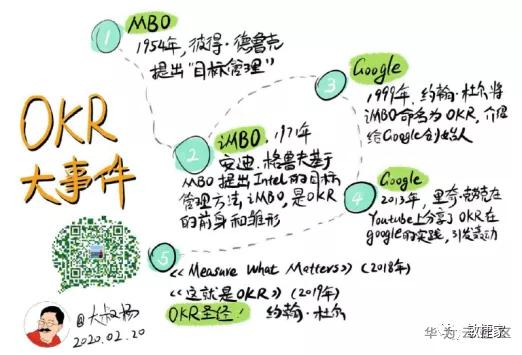 OKR
大事件
1
MBO
1954年,彼得·德鲁克
提出"目标管理"
2
iMBO, 1971年
安迪·格鲁夫基于
MBO提出Intel的目标
管理方法,iMBO,是OKR
的前身和雏形
3
Google
1999年,约翰·杜尔将
iMBO命名为OKR,介绍
给Google创始人
4
Google
2013年,里奇·克劳在
Youtube上分享了OKR在
google的实践,引发轰动
5
《Measure What Matters》(2018年)
《这就是OKR》(2019年)
OKR圣经! 约翰·杜尔
@大叔杨
2020.02.20